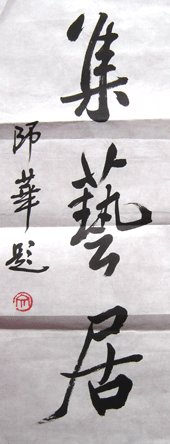 集藝居
師華題